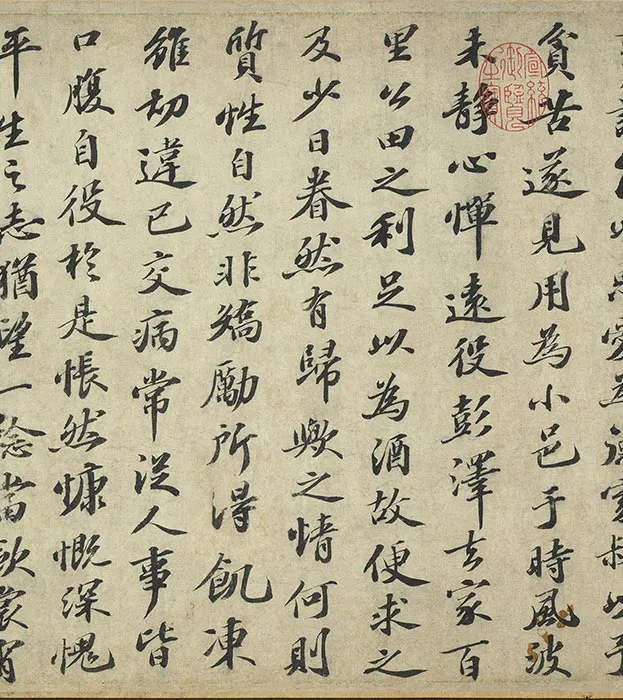 以惠愛為德家叔以予
貧苦遂見用為小邑于時風波
未靜心憚遠役彭澤去家百
里公田之利足以為酒故便求之
及少日眷然有歸歟之情何則
質性自然非矯勵所得飢凍
雖切違己交病常從人事皆
口腹自役於是悵然慷慨深愧
平生之志猶望一稔當歛裳宵
宣統御覽之寶